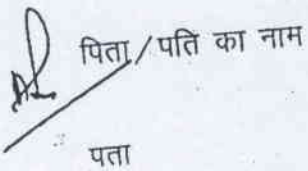 पिता/पति का नाम
पता